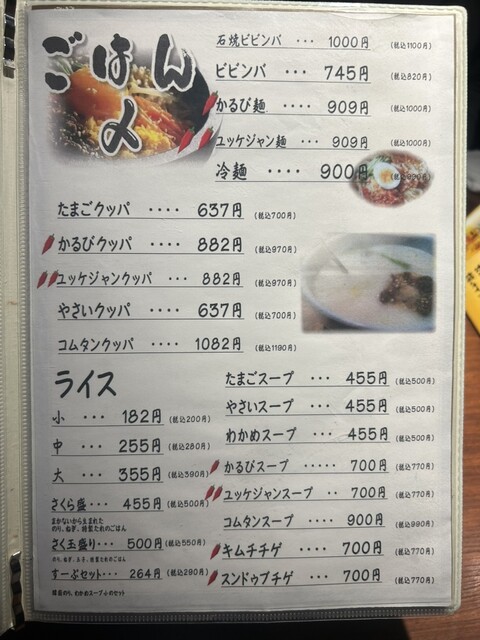 ごはん
〆
石焼ビビンバ ・・・ 1000円 (税込1100円)
ビビンバ ・・・ 745円 (税込820円)
かるび麺 ・・・・ 909円 (税込1000円)
ユッケジャン麺 ・・・ 909円 (税込1000円)
冷麺 ・・・・ 900円 (税込990円)
たまごクッパ ・・・・ 637円 (税込700円)
かるびクッパ ・・・・ 882円 (税込970円)
ユッケジャンクッパ ・・・ 882円 (税込970円)
やさいクッパ ・・・・ 637円 (税込700円)
コムタンクッパ ・・・・ 1082円 (税込1190円)
ライス
小 ・・・ 182円 (税込200円)
中 ・・・ 255円 (税込280円)
大 ・・・ 355円 (税込390円)
さくら盛 ・・・ 455円 (税込500円)
まかないから生まれた
のり、ねぎ、特製たれのごはん
さく玉盛り・・・ 500円 (税込550円)
のり、ねぎ、玉子、特製たれのごはん
すーぷセット・・・ 264円 (税込290円)
韓国のり、わかめスープ小のセット
たまごスープ ・・・ 455円 (税込500円)
やさいスープ ・・・ 455円 (税込500円)
わかめスープ ・・・ 455円 (税込500円)
かるびスープ ・・・・ 700円 (税込770円)
ユッケジャンスープ ・・ 700円 (税込770円)
コムタンスープ ・・・ 900円 (税込990円)
キムチチゲ ・・・ 700円 (税込770円)
スンドゥブチゲ ・・・ 700円 (税込770円)